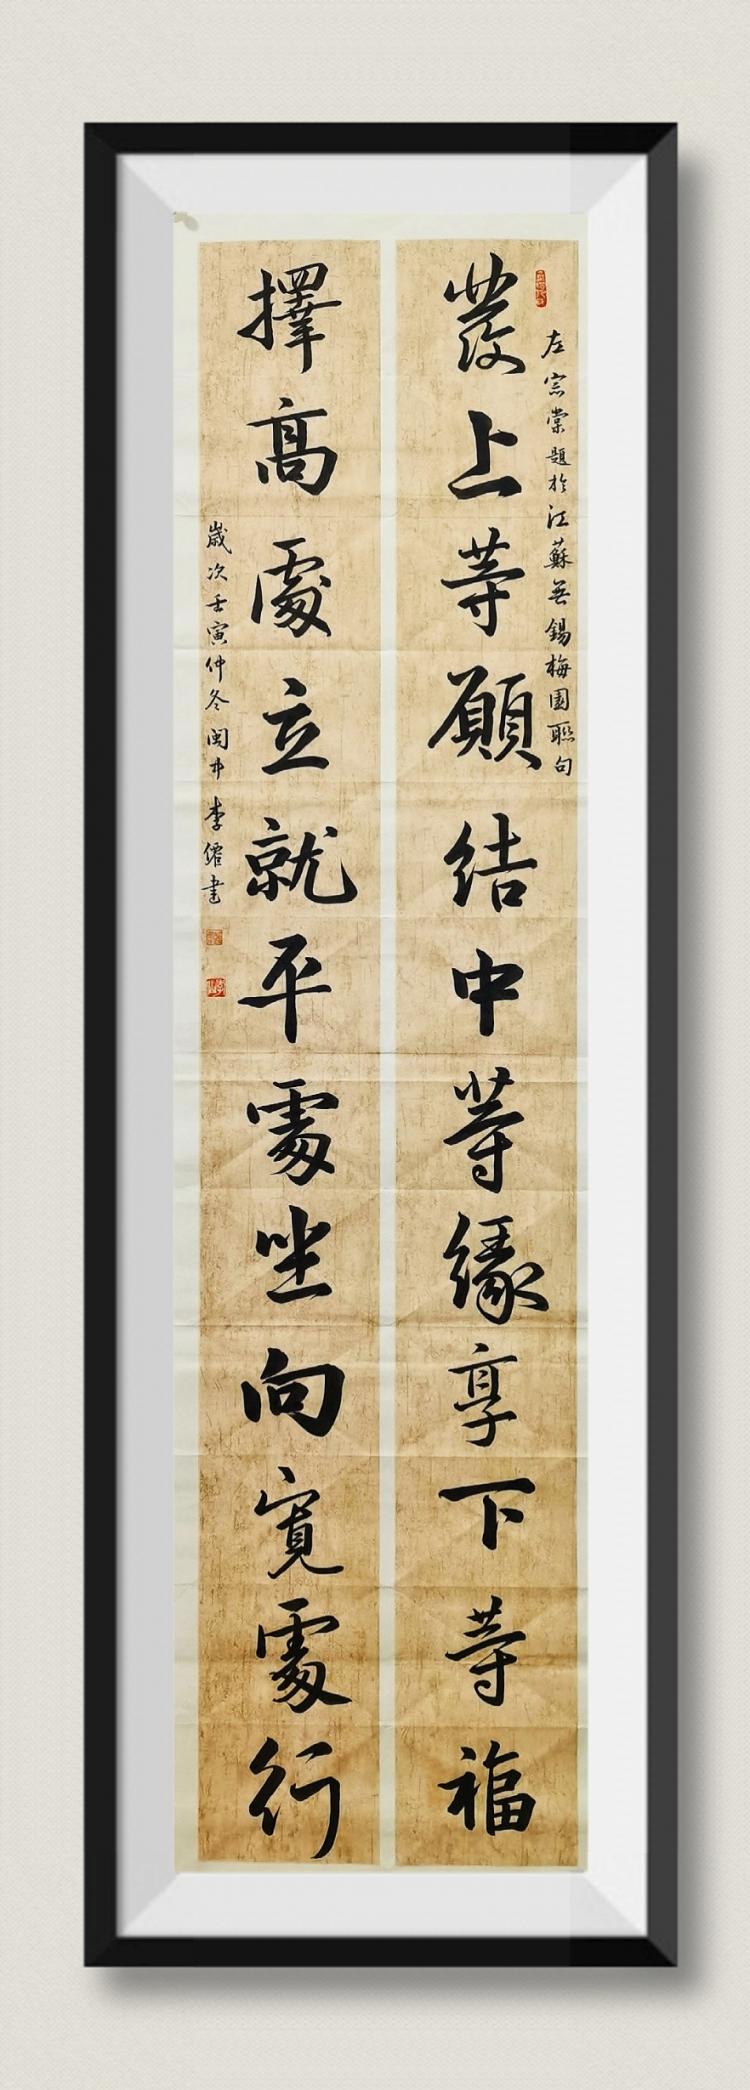 左宗棠題於江蘇無錫梅園聯句
發上等願結中等緣享下等福
擇高處立就平處坐向寬處行
歲次壬寅仲冬閩中李
書